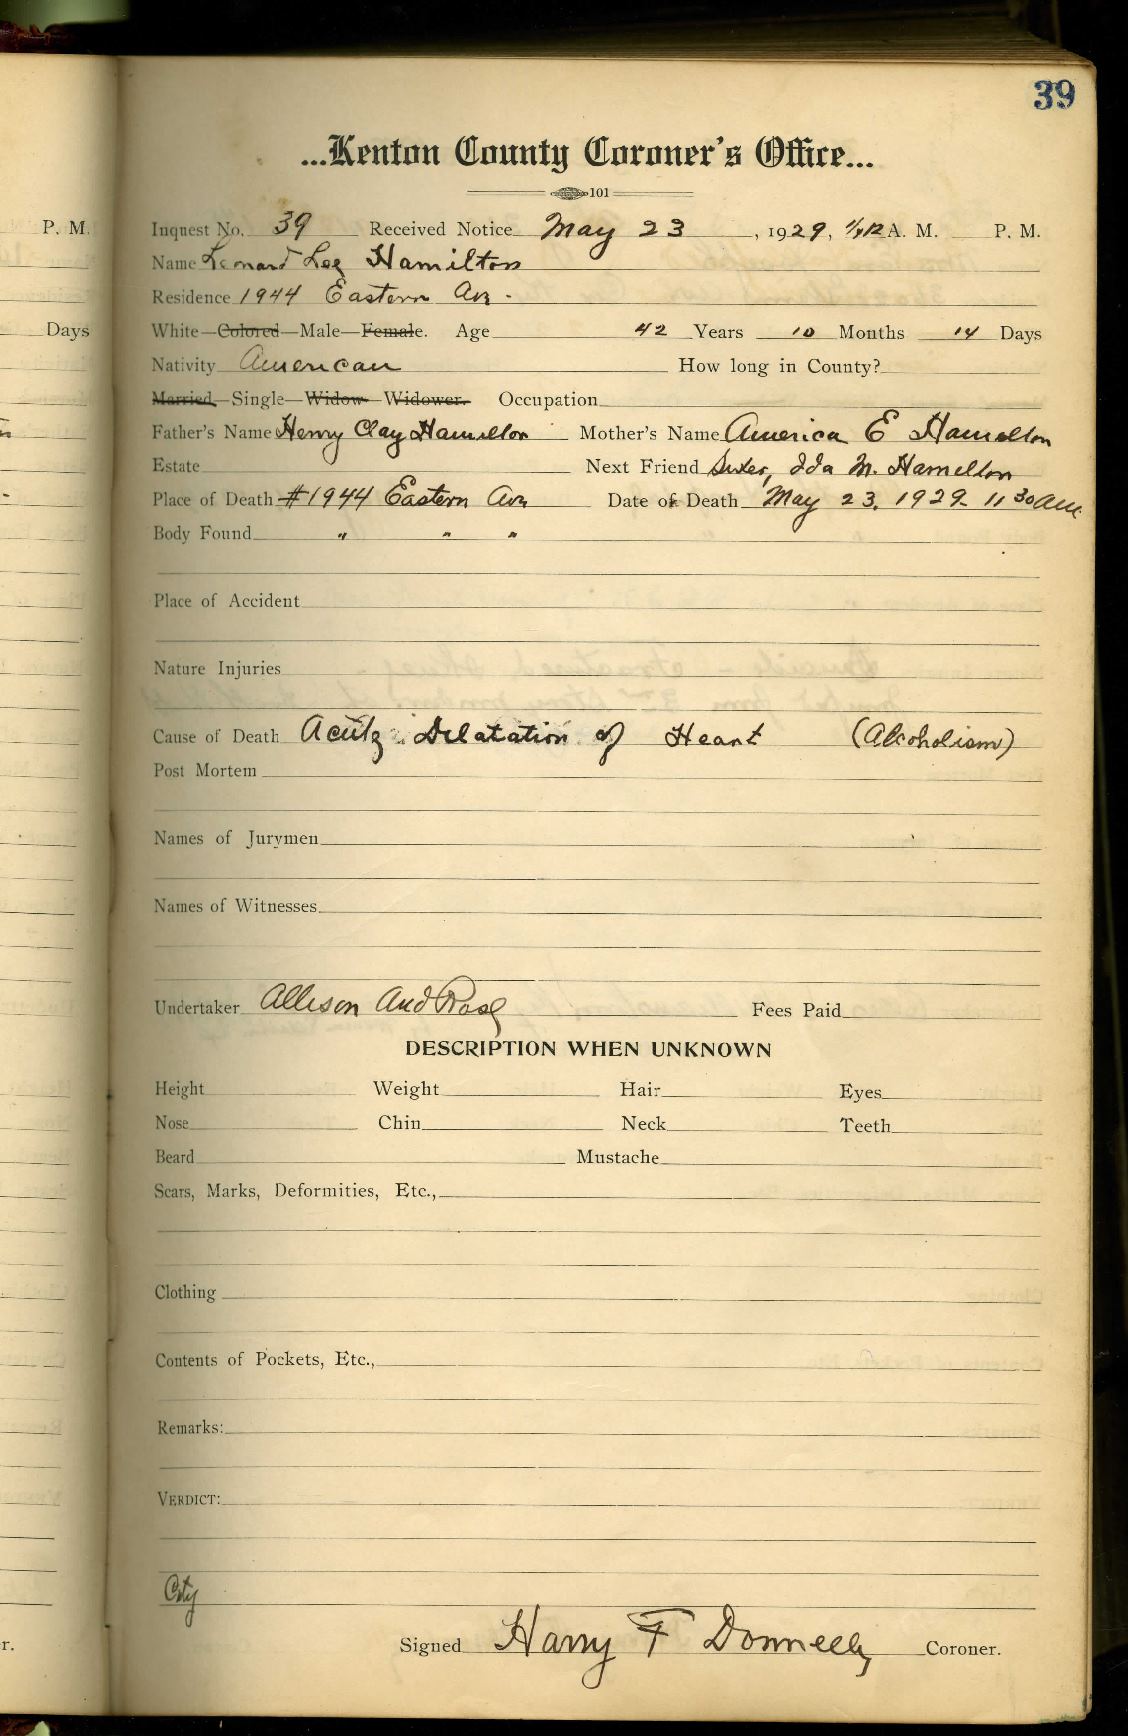 39
...Kenton County Coroner's Office...
101
P. M.
Inquest No. 39 Received Notice May 23, 1929, A. M. P. M.
Name Leonard Lee Hamilton
Residence 1944 Eastern Ave.
Days
White—Colored—Male—Female. Age 42 Years 10 Months 14 Days
Nativity American How long in County?
Married—Single—Widow—Widower. Occupation
Father's Name Henry Clay Hamilton Mother's Name America E Hamilton
Estate Next Friend Sister, Ida M. Hamilton
Place of Death #1944 Eastern Ave Date of Death May 23, 1929 11 30 am
Body Found " " "
Place of Accident
Nature Injuries
Cause of Death Acute Delatation of Heart (Alcoholism)
Post Mortem
Names of Jurymen
Names of Witnesses
Undertaker Allison And Rose Fees Paid
DESCRIPTION WHEN UNKNOWN
Height Weight Hair Eyes
Nose Chin Neck Teeth
Beard Mustache
Scars, Marks, Deformities, Etc.,
Clothing
Contents of Pockets, Etc.,
Remarks:
VERDICT:
City
r.
Signed Harry F Donnelly Coroner.